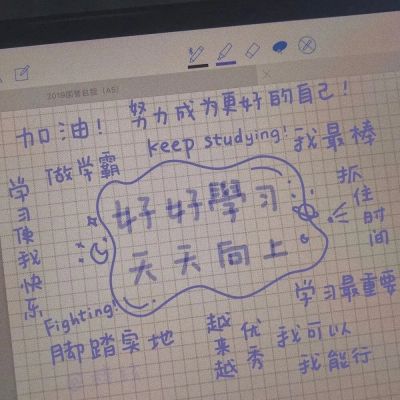 2019国省自控 (A5)
加油!
努力成为更好的自己!
keep studying!
我最棒
做学霸
学习使我快乐
好好學习
天天向上
抓住时间
学习最重要
Fighting!
脚踏实地
越来越优秀
我可以
我能行